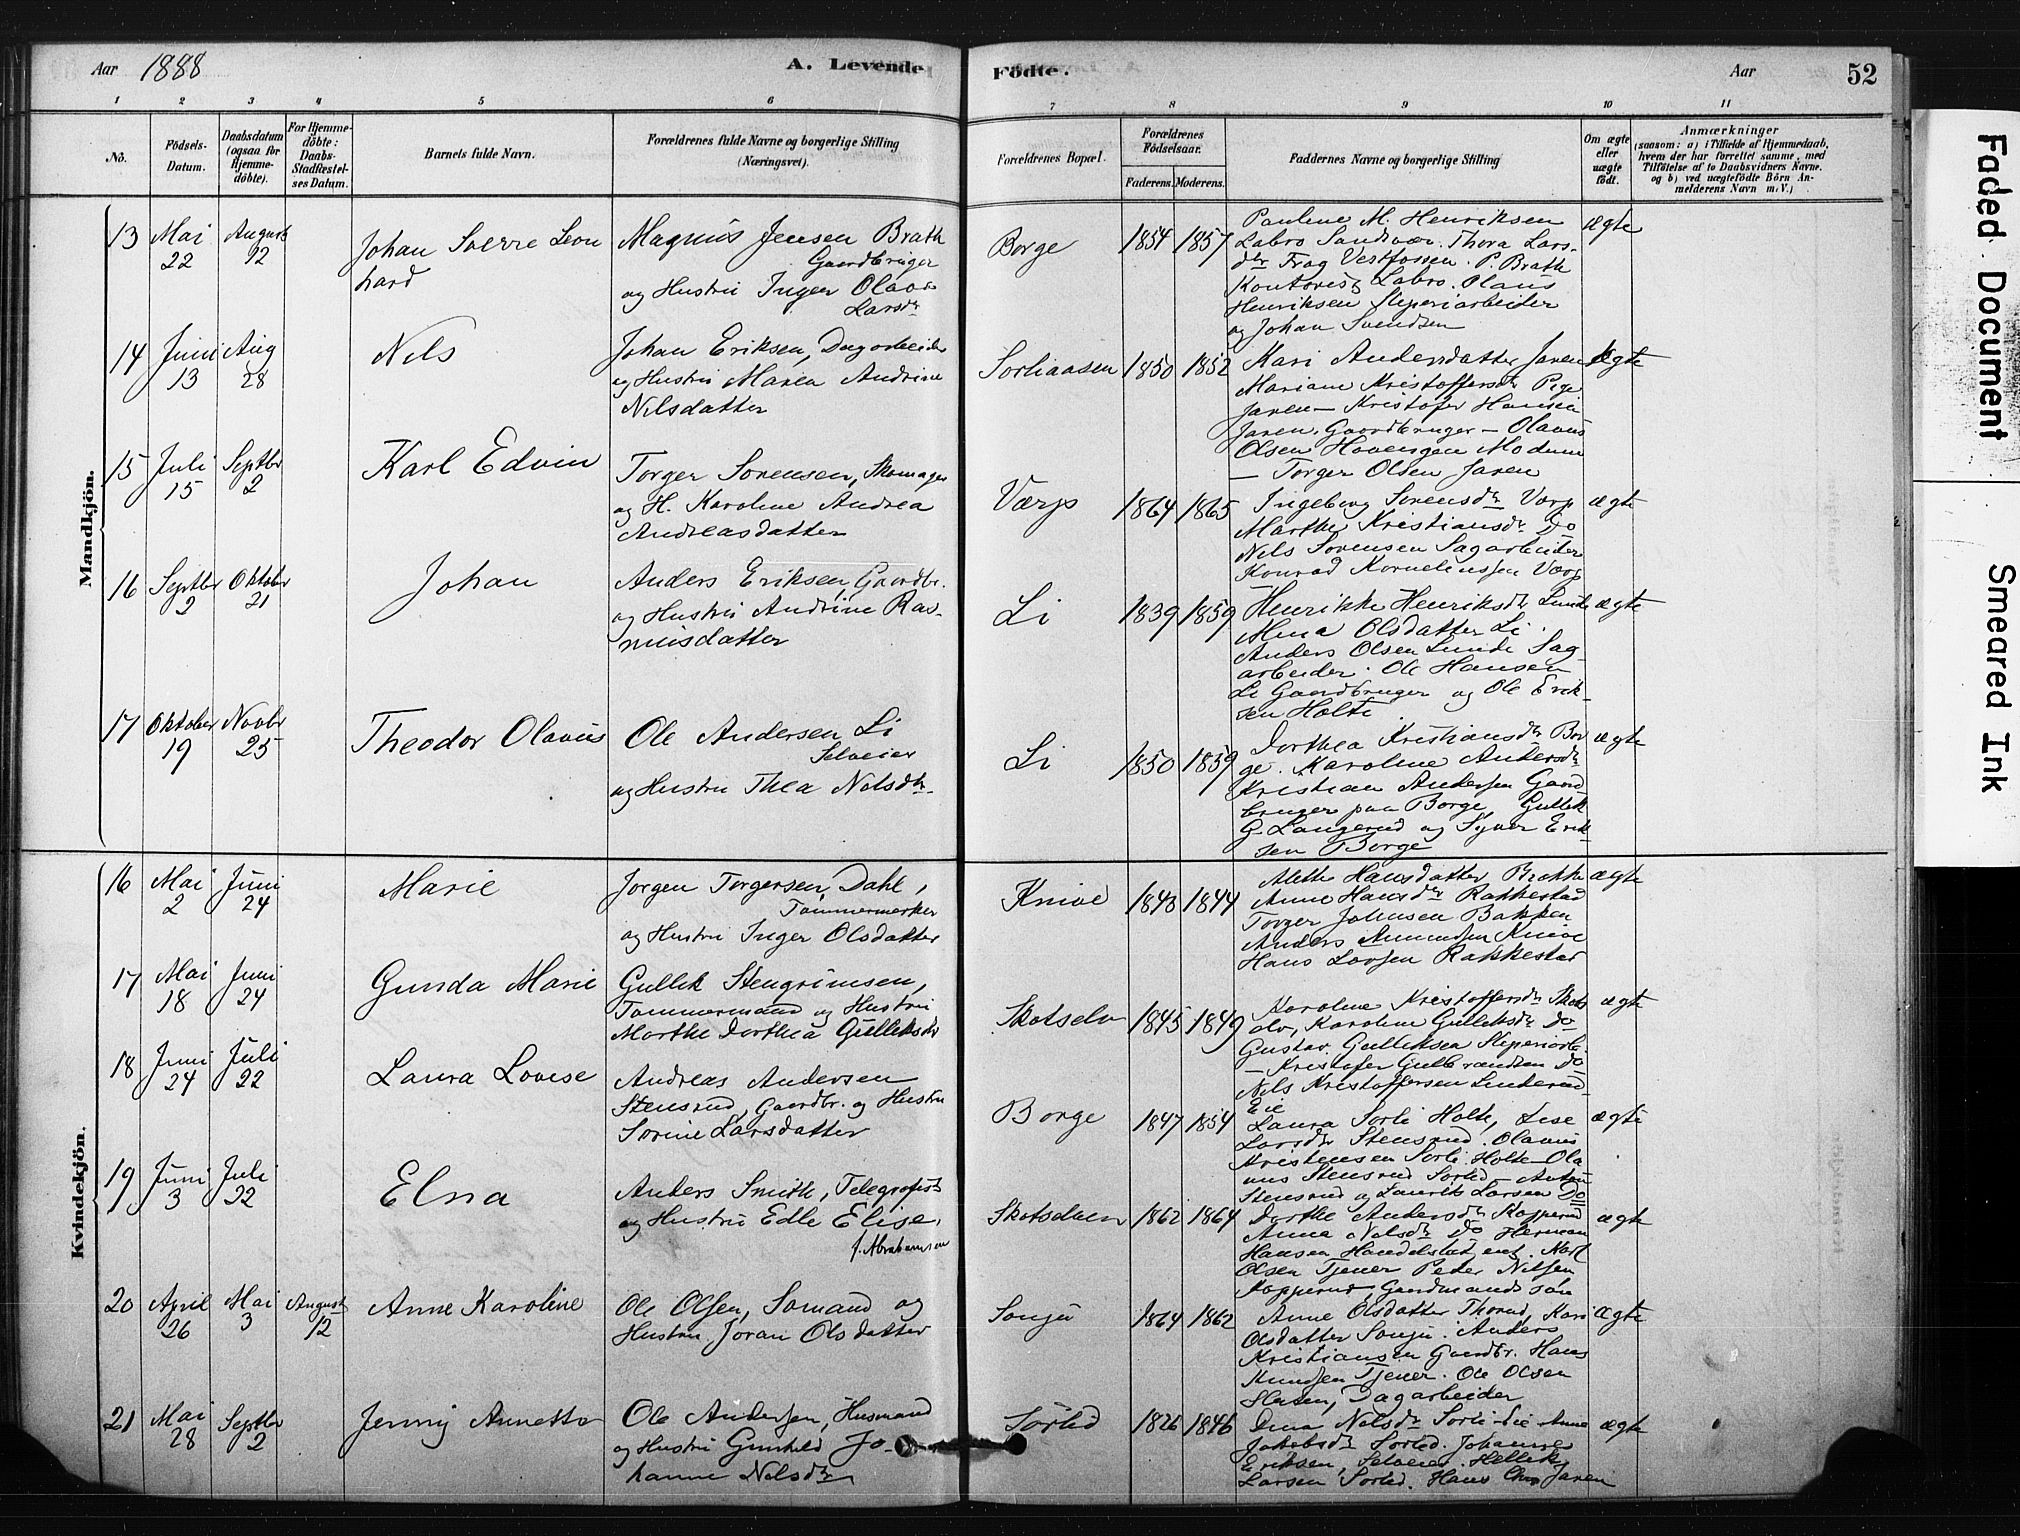 Aar 1888
A. Levende Fødte.
Aar
52
1 2 3 4 5 6 7 8 9 10 11
No.
Födsels-Datum.
Daabsdatum (ogsaa for Hjemme-döbte).
For Hjemme-döbte: Daabs-Stadfæstel-ses Datum.
Barnets fulde Navn.
Forældrenes fulde Navne og borgerlige Stilling (Næringsvei).
Forældrenes Bopæl.
Forældrenes Födselsaar.
Faderens. Moderens.
Faddernes Navne og borgerlige Stilling
Om ægte eller uægte födt.
Anmærkninger
(saasom: a) i Tilfælde af Hjemmedaab,
hvem der har forrettet samme, med
Tilföielse af to Daabsvidners Navne.
og b) ved uægtefödte Börn An-
melderens Navn m. V.)
Mandkjön.
13 Mai 22 August 12
Johan Sverre Leon
hard
Magnus Jensen Brath
Gaardbruger
og Hustru Inger Olava
Larsdr
Borge 1854 1857
Pauline M. Henriksen
Labro Sandsvær. Thora Lars-
dtr Frog Vestfossen. P. Brath
Kontorist Labro. Olaus
Henriksen Sliperiarbeider
og Johan Svendsen
ægte
14 Juni 13 Aug 28
Nils
Johan Eriksen, Dagarbeider
og Hustru Maren Andrine
Nilsdatter
Sorliaasen 1850 1852
Kari Andersdatter Jaren
Mariane Kristoffersdr Pige
Jaren – Kristofer Hansen
Jaren, Gaardbruger – Olavus
Olsen Hovengen Modum
– Torger Olsen Jaren
Ægte
15 Juli 15 Septbr 2
Karl Edvin
Torger Sorensen, Skomager
og H. Karoline Andrea
Andreasdatter
Værp 1864 1865
Ingeborg Sorensdr Værp
Marthe Kristiansdr Do
Nils Sorensen Sagarbeider
Konrad Korneliussen Værp
ægte
16 Septbr 2 Oktobr 21
Johan
Anders Eriksen, Gaardbr.
og Hustru Andrine Ras-
musdatter
Li 1839 1859
Henrikke Henriksdr Lunde
Mina Olsdatter Li.
Anders Olsen Lunde Sag-
arbeider. Ole Hansen
Li Gaardbruger og Ole Erik-
sen Holte.
ægte
17 Oktober 19 Novbr 25
Theodor Olavus
Ole Andersen Li
Selveier
og Hustru Thea Nilsdtr.
Li 1850 1859
Dorthea Kristiansdr Bor
ge. Karoline Andersdr
Kristian Andersen Gaard
bruger paa Borge, Gullik
G. Langerud og Syver Erik
sen Borge
ægte
Kvindekjön.
16 Mai 2 Juni 24
Marie
Jorgen Torgersen Dahl,
Tømmermerker
og Hustru Inger Olsdatter
Knive 1843 1844
Alette Hansdatter Brække
Anne Hansdr Rakkestad
Torger Johnsen Bakken
Anders Amundsen Knive
Hans Larsen Rakkestad
ægte
17 Mai 18 Juni 24
Gunda Marie
Gullik Stengrimsen,
Tømmermand og Hustru
Marthe Dorthea Gulliksdr
Skotselv 1845 1849
Karoline Kristoffersdr Skots
elv, Karoline Gulliksdr Do
Gustav Gulliksen Sliperiarb.
– Kristofer Gulbrandsen Do
Nils Kristoffersen Linderud
Eie
ægte
18 Juni 24 Juli 22
Laura Lovise
Andreas Andersen
Stensrud, Gaardbr. og Hustru
Sorine Larsdatter
Borge 1847 1854
Laura Sorli Holte, Lise
Larsdr Stensrud. Olavus
Kristensen Sorli. Holte. Ola
vus Stensrud Sorted – Anton
Stensrud og Laurits Larsen Do
ægte
19 Juni 3 Juli 22
Elna
Anders Smith, Telegrafist
og Hustru Edle Elise,
f. Abrahamsen
Skotselven 1862 1864
Dorthe Andersdr Kopperud
Anna Nilsdr Do Herman
Hansen Handelsbetjent. Karl
Olsen Tjener Peder Nilsen
Kopperud Gaardmands søn
ægte
20 April 26 Mai 3 August 12
Anne Karoline
Ole Olsen, Somand og
Hustru Joran Olsdatter
Sonju 1864 1862
Anne Olsdatter Thorud, Kari
Olsdatter Sonju. Anders
Kristiansen Gaardbr. Hans
Knudsen Tjener. Ole Olsen
Stensen, Dagarbeider
Ægte
21 Mai 28 Septbr 2
Jenny Annette
Ole Andersen, Husmand
og Hustru Gunhild Jo-
hanne Nilsdr
Sorted 1826 1846
Dina Nilsdr Sorli Eie Anne
Jakobsdr Sorted. Johannes
Eriksen, Selveier. Hellik
Larsen Sorted. Hans Chr. Jaren
ægte
Faded Document
Smeared Ink